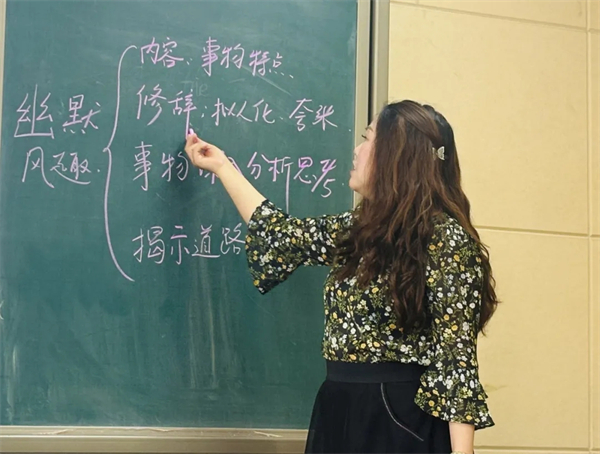 幽默
风趣.
内容: 事物特点.
修辞: 拟人化、夸
事物 分析思
揭示道路